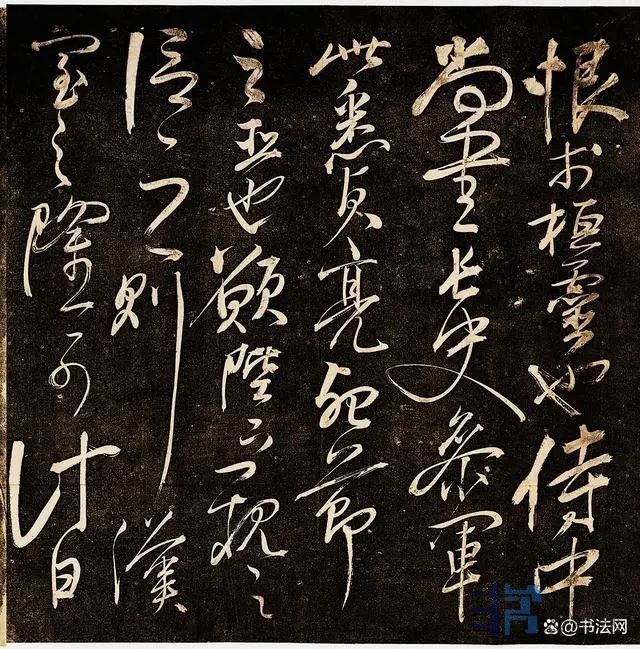 恨於桓靈也侍中
尚書長史參軍
此悉貞亮死節
之臣也願陛下親之
信之則漢
室之隆可計日
@书法网